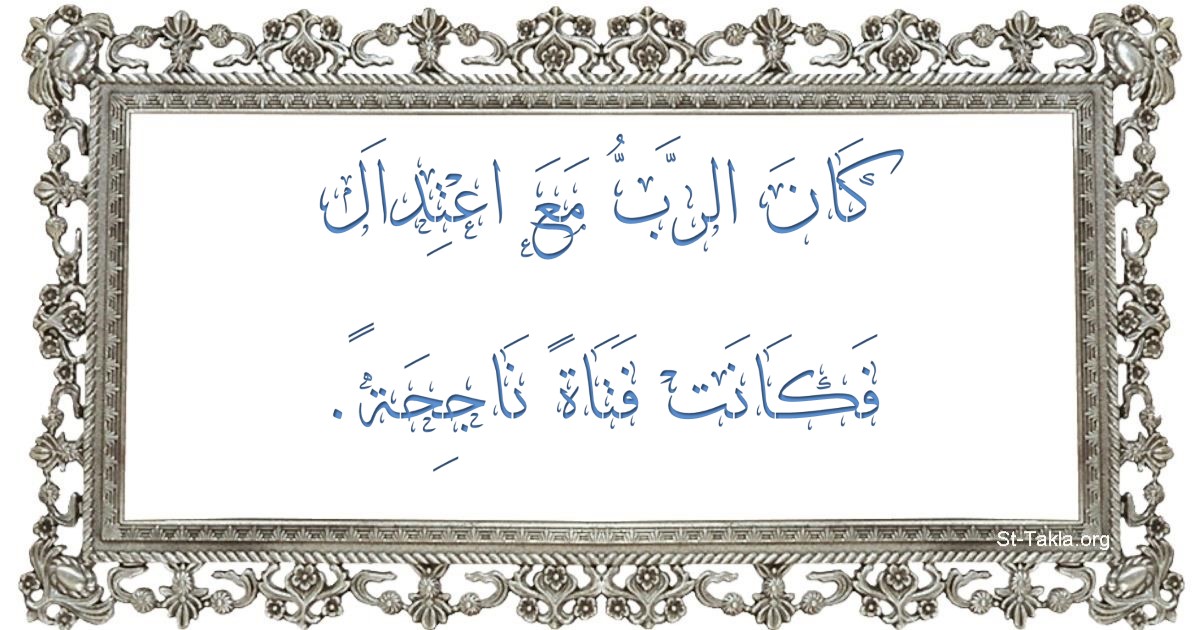 كَانَ الرَّبُّ مَعَ اعْتِدَالَ
فَكَانَتْ فَتَاةً نَاجِحَةً.
St-Takla.org